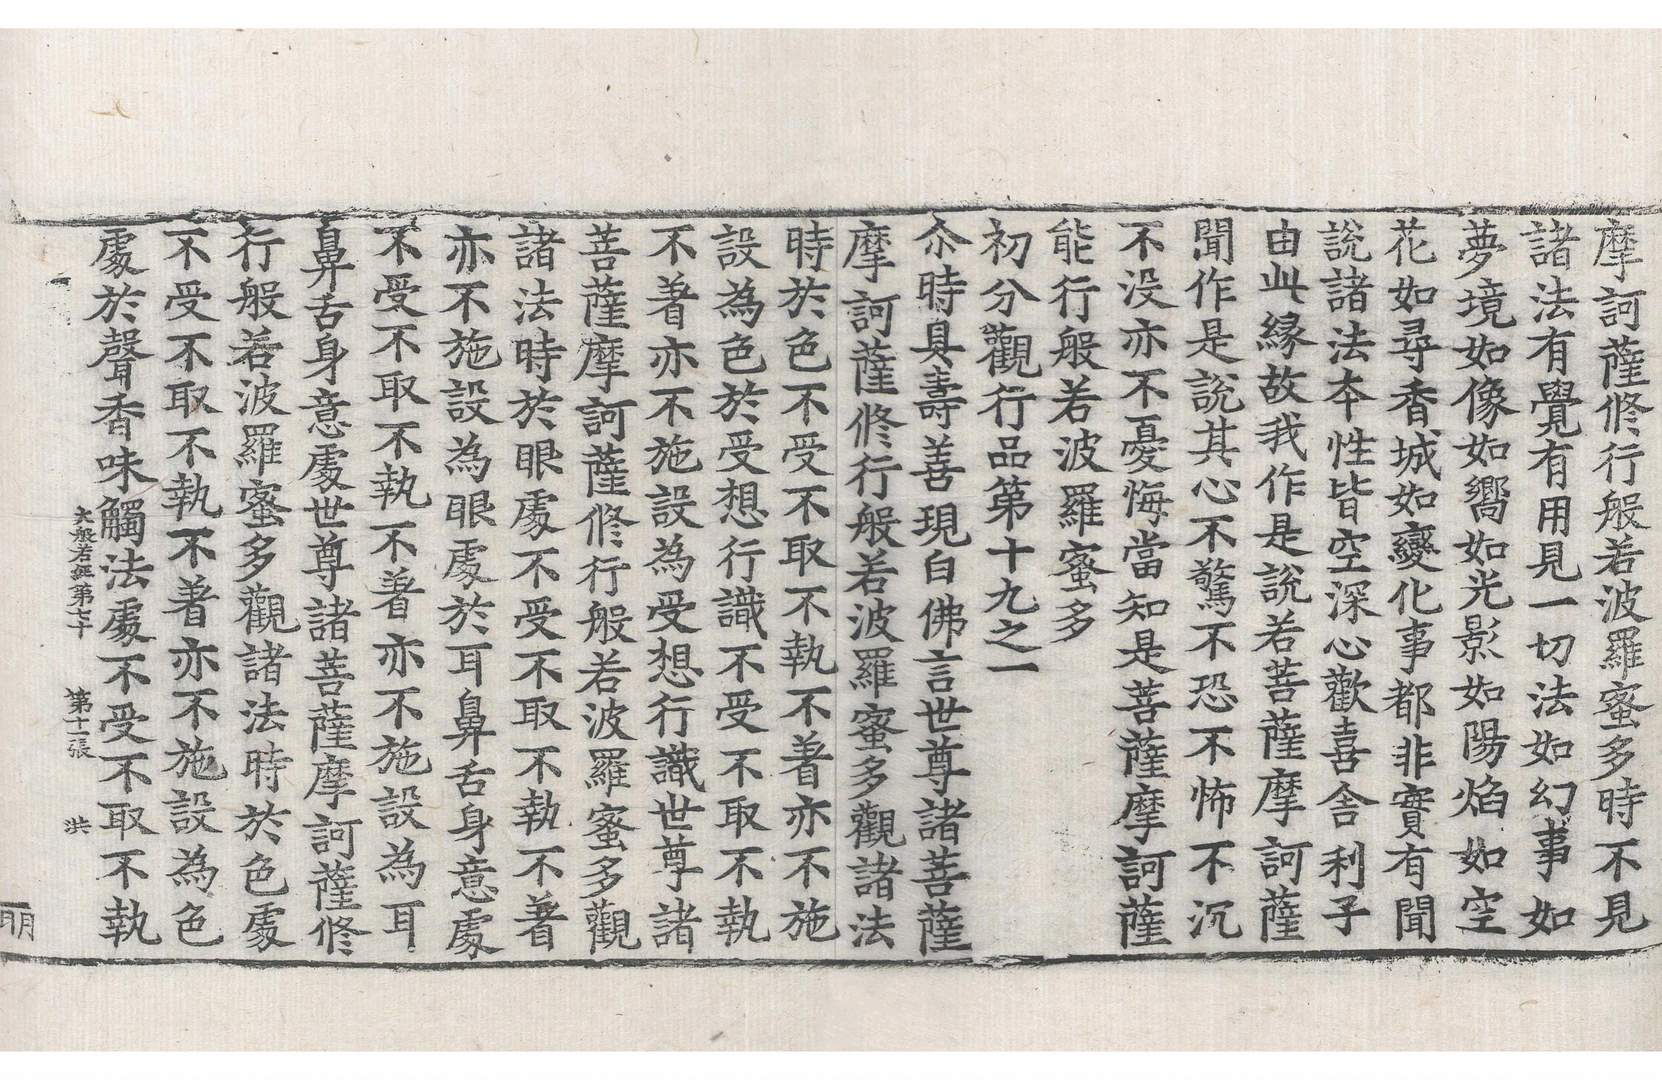 摩訶薩修行般若波羅蜜多時不見
諸法有覺有用見一切法如幻事如
夢境如像如嚮如光影如陽焰如空
花如尋香城如變化事都非實有聞
說諸法本性皆空深心歡喜舍利子
由此緣故我作是說若菩薩摩訶薩
聞作是說其心不驚不恐不怖不沉
不沒亦不憂悔當知是菩薩摩訶薩
能行般若波羅蜜多
初分觀行品第十九之一
尒時具壽善現白佛言世尊諸菩薩
摩訶薩修行般若波羅蜜多觀諸法
時於色不受不取不執不著亦不施
設為色於受想行識不受不取不執
不著亦不施設為受想行識世尊諸
菩薩摩訶薩修行般若波羅蜜多觀
諸法時於眼處不受不取不執不著
亦不施設為眼處於耳鼻舌身意處
不受不取不執不著亦不施設為耳
鼻舌身意處世尊諸菩薩摩訶薩修
行般若波羅蜜多觀諸法時於色處
不受不取不執不著亦不施設為色
處於聲香味觸法處不受不取不執
大般若經第七十 第十一張 洪